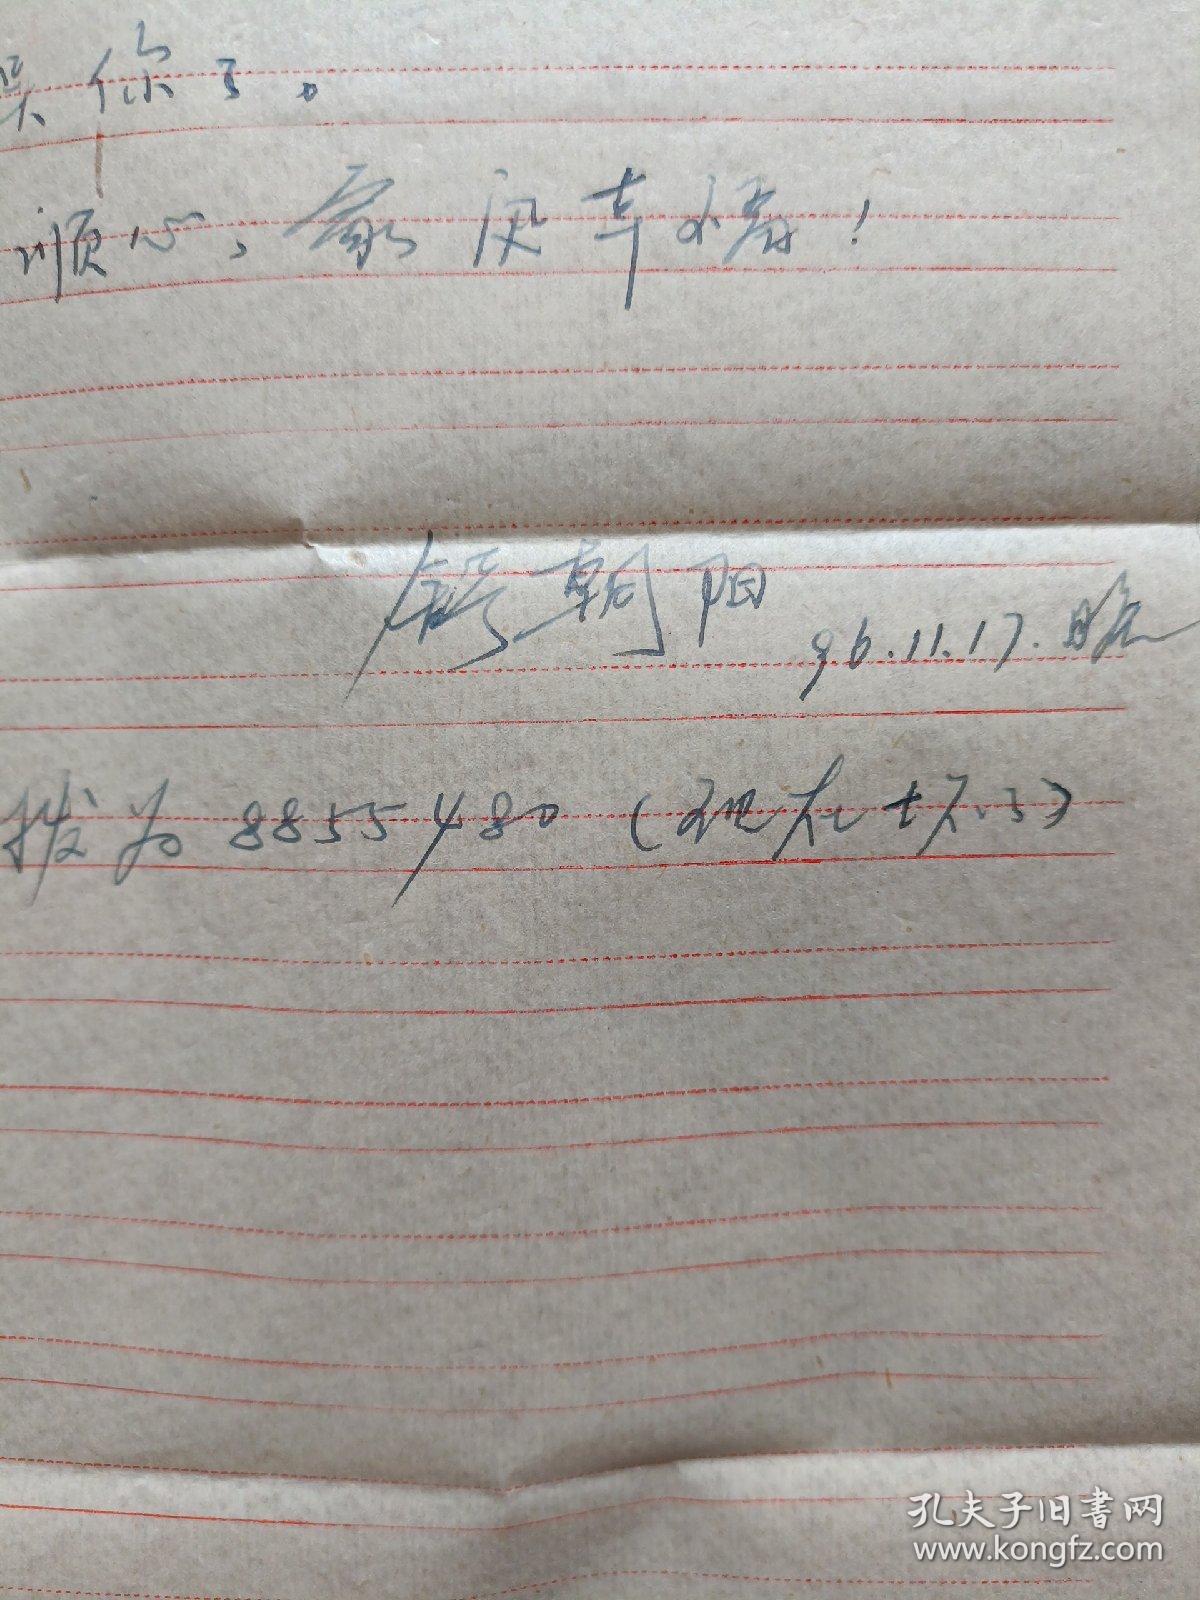 你了。
顺心、家庭幸福！
朝阳
96.11.17.晚
拨为8855480（现在坏了）
孔夫子旧书网
www.kongfz.com